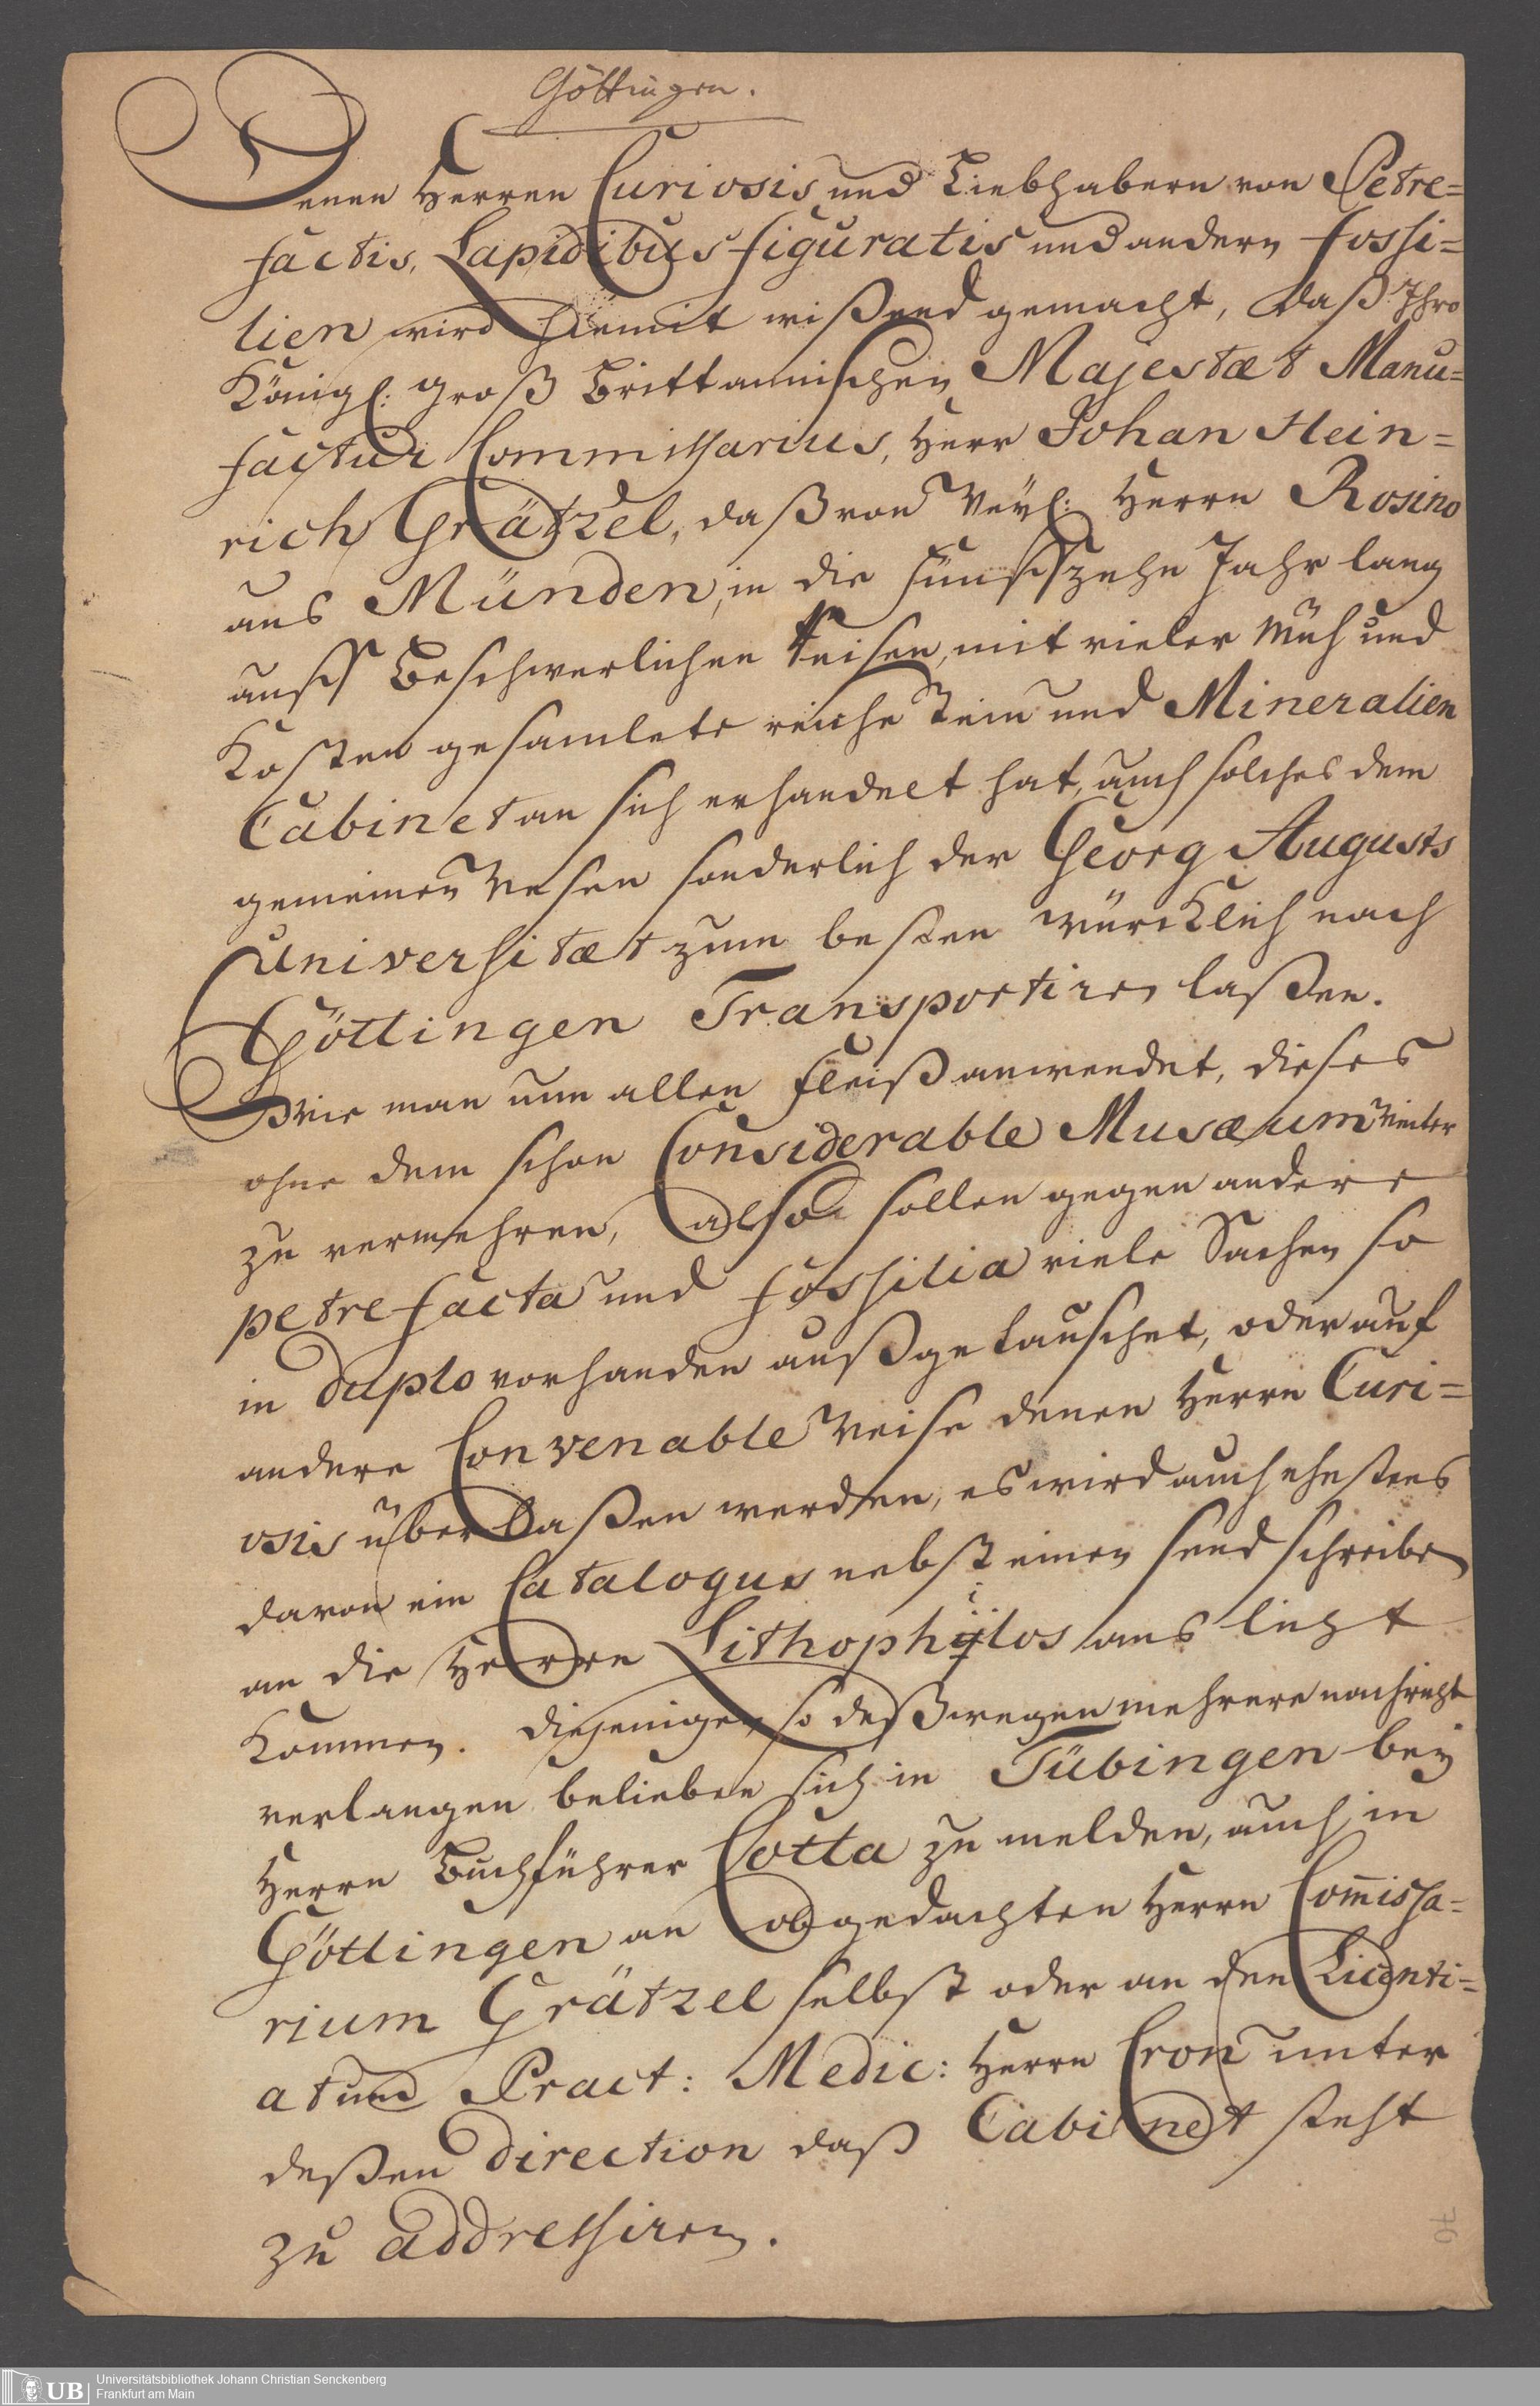 Göttingen.
Denen Herren Curiosis und Liebhabern von Petre=
factis, Lapidibus figuratis und andern fossi=
lien wird hiemit wißend gemacht, daß Ihro
Königl: Groß Brittannischen Majestæt Manu=
factur Commissarius, Herr Johan Hein=
rich Grätzel, daß von Weyl: Herrn Rosino
aus Münden, in die fünffzehn Jahr lang
auff Beschwerlichen Reisen, mit vieler Müh und
Kosten gesamlete reiche Stein und Mineralien
Cabinet an sich erhandelt hat, auch solches dem
gemeinen Wesen sonderlich der Georg Augusts
Universitæt zum besten würcklich nach
Göttingen Transportiren laßen.
Wie man nun allen Fleiß anwendet, dieses
ohne dem schon Considerable Musæum weiter
zu vermehren, also sollen gegen andere
petrefacta und fossilia viele Sachen so
in duplo vorhanden außgetauschet, oder auf
andere Convenable Weise denen Herrn Curi=
osis überlaßen werden, es wird auch ehestens
davon ein Catalogus nebst einen send schreiben
an die Herrn Lithophilos ans licht
Kommen. Diejenigen so deßwegen mehrere nachricht
verlangen belieben sich in Tübingen bey
Herrn Buchführer Cotta zu melden, auch in
Göttingen an obgedachten Herrn Commissa=
rium Grätzel selbst oder an den Licenti=
at und Pract: Medic: Herrn Cron unter
deßen direction daß Cabinet steht
zu addressiren.
70
UB
Universitätsbibliothek Johann Christian Senckenberg
Frankfurt am Main